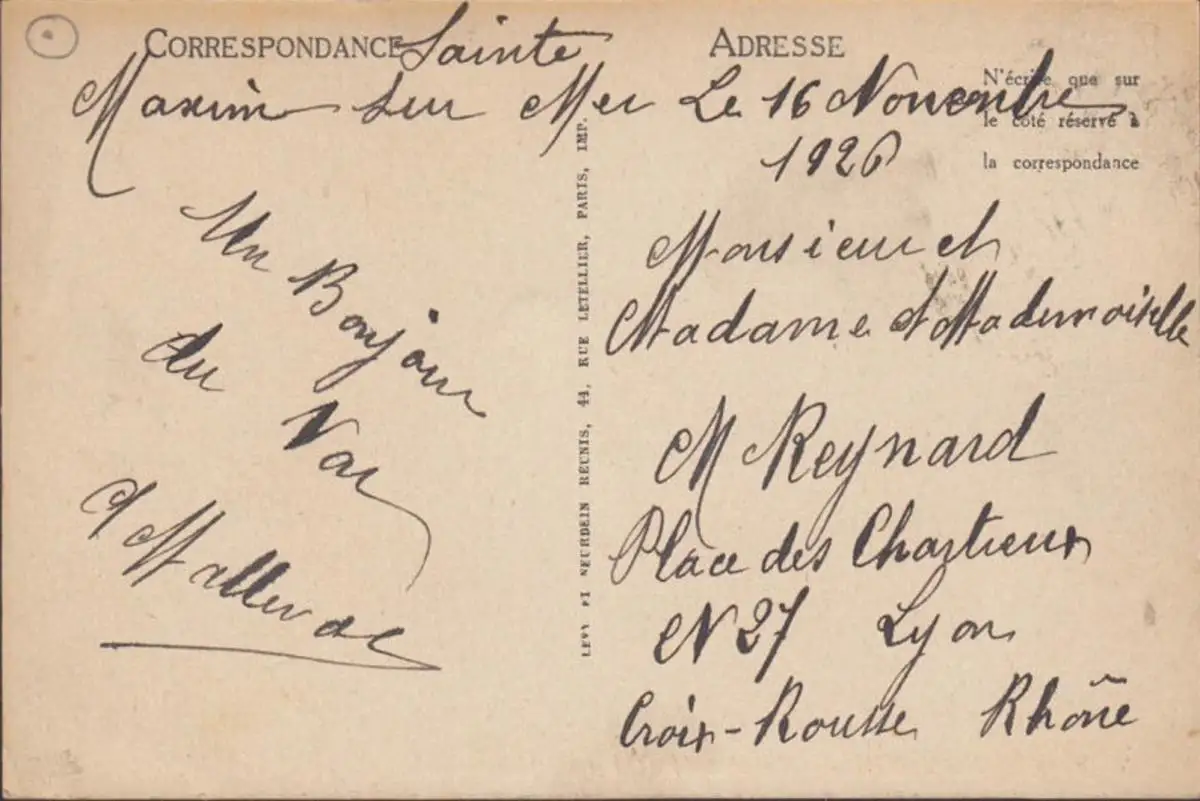 CORRESPONDANCE Sainte
ADRESSE
Maxim sur Mer Le 16 Novembre
1926
N'écrire que sur
le côté réservé à
la correspondance
Un Bonjour
du Var
Malleval
LEVY ET NEURDEIN RÉUNIS, 44, RUE LETELLIER, PARIS, IMP.
Monsieur et
Madame et Mademoiselle
M Reynard
Place des Chartreux
N 27 Lyon
Croix-Rousse Rhône